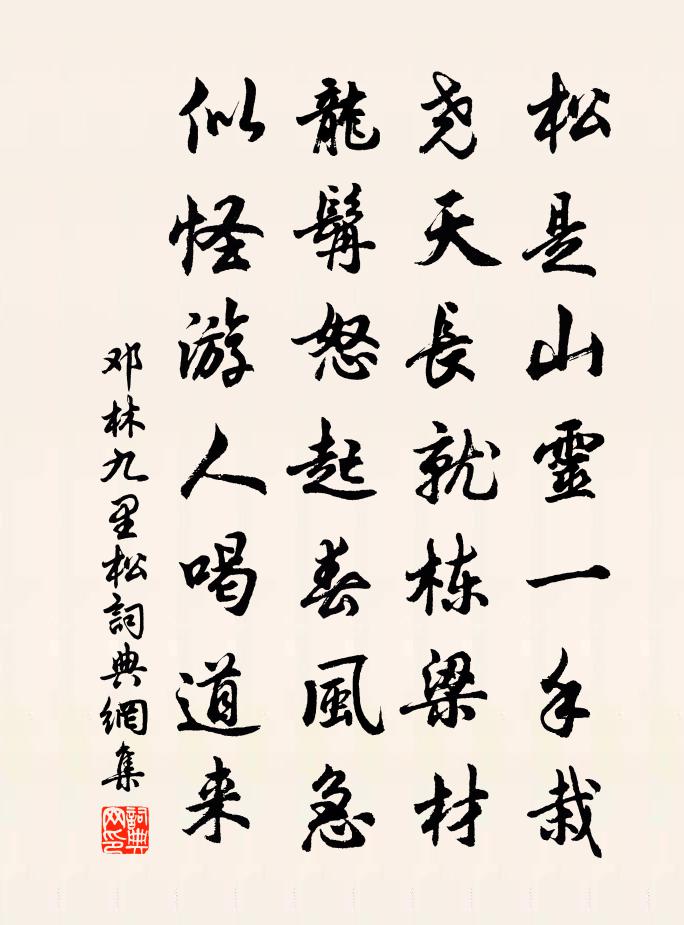 松是山靈一手栽
尧天長就栋梁材
龍髯怒起春風急
似怪游人喝道来
邓林九里松詞典網集
詞典網印